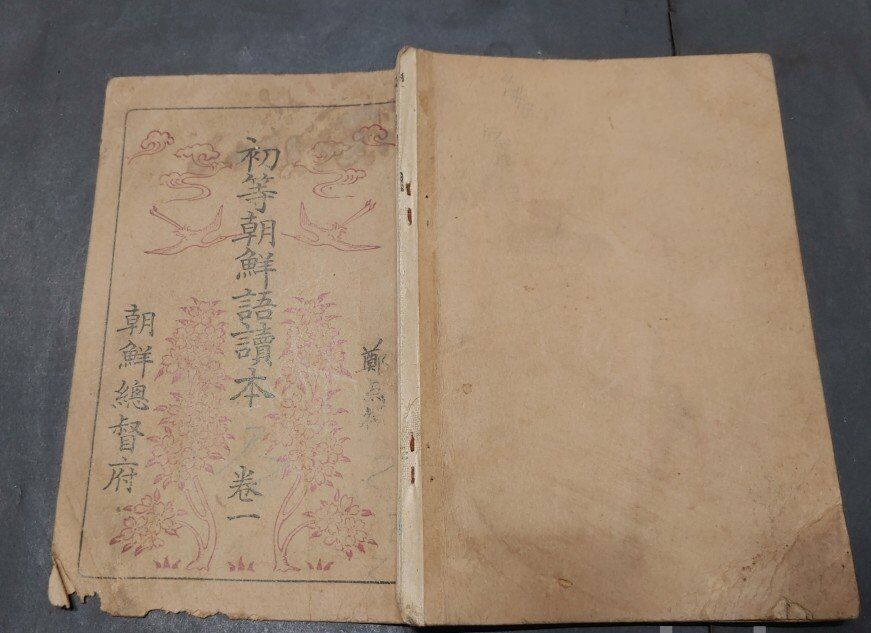 初等朝鮮語讀本 卷一
鄭
朝鮮總督府